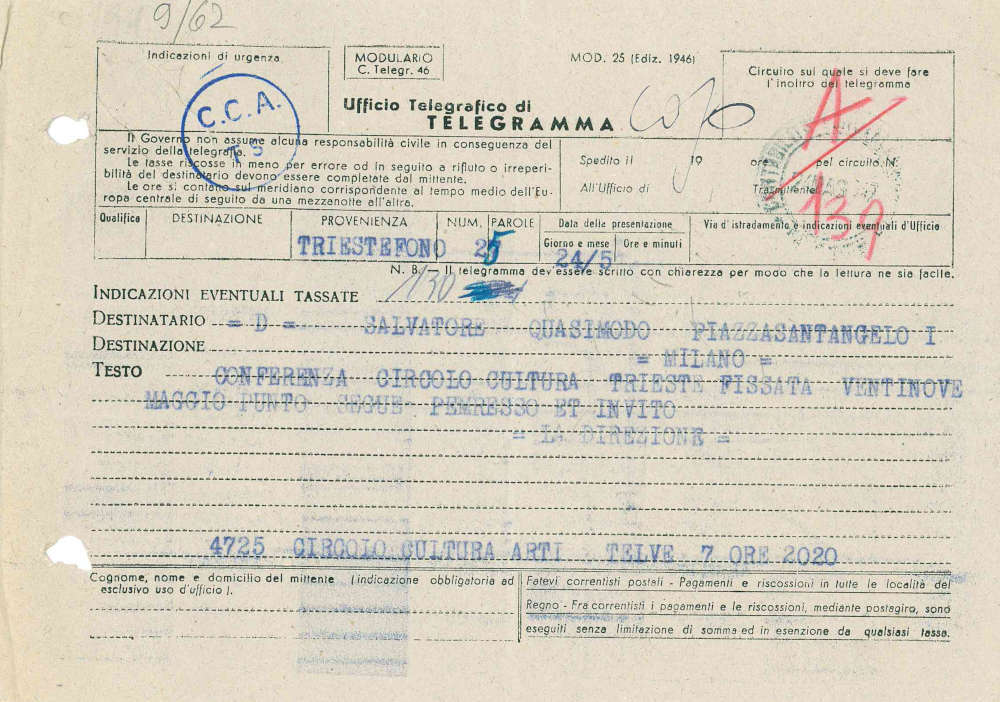 9/62
Indicazioni di urgenza
MODULARIO
C. Telegr. 46
MOD. 25 (Ediz. 1946)
Circuito sul quale si deve fare
l'inoltro del telegramma
A
139
C.C.A.
TS
Ufficio Telegrafico di
TELEGRAMMA
Il Governo non assume alcuna responsabilità civile in conseguenza del
servizio della telegrafia.
Le tasse riscosse in meno per errore od in seguito a rifiuto o irreperi-
bilità del destinatario devono essere completate dal mittente.
Le ore si contano sul meridiano corrispondente al tempo medio dell'Eu-
ropa centrale di seguito da una mezzanotte all'altra.
Spedito il 19 ore pel circuito N.
All'Ufficio di Trasmittente
Qualifica DESTINAZIONE PROVENIENZA NUM. PAROLE Data della presentazione Via d'istradamento e indicazioni eventuali d'Ufficio
Giorno e mese Ore e minuti
TRIESTEFONO 25 24/5
N. B. — Il telegramma dev'essere scritto con chiarezza per modo che la lettura ne sia facile.
INDICAZIONI EVENTUALI TASSATE 1130
DESTINATARIO = D = SALVATORE QUASIMODO PIAZZASANTANGELO I
DESTINAZIONE = MILANO =
TESTO CONFERENZA CIRCOLO CULTURA TRIESTE FISSATA VENTINOVE
MAGGIO PUNTO SEGUE PEMRESSO ET INVITO
= LA DIREZIONE =
4725 CIRCOLO CULTURA ARTI TELVE 7 ORE 2020
Cognome, nome e domicilio del mittente (indicazione obbligatoria ad
esclusivo uso d'ufficio).
Fatevi correntisti postali - Pagamenti e riscossioni in tutte le località del
Regno - Fra correntisti i pagamenti e le riscossioni, mediante postagiro, sono
eseguiti senza limitazione di somma ed in esenzione da qualsiasi tassa.